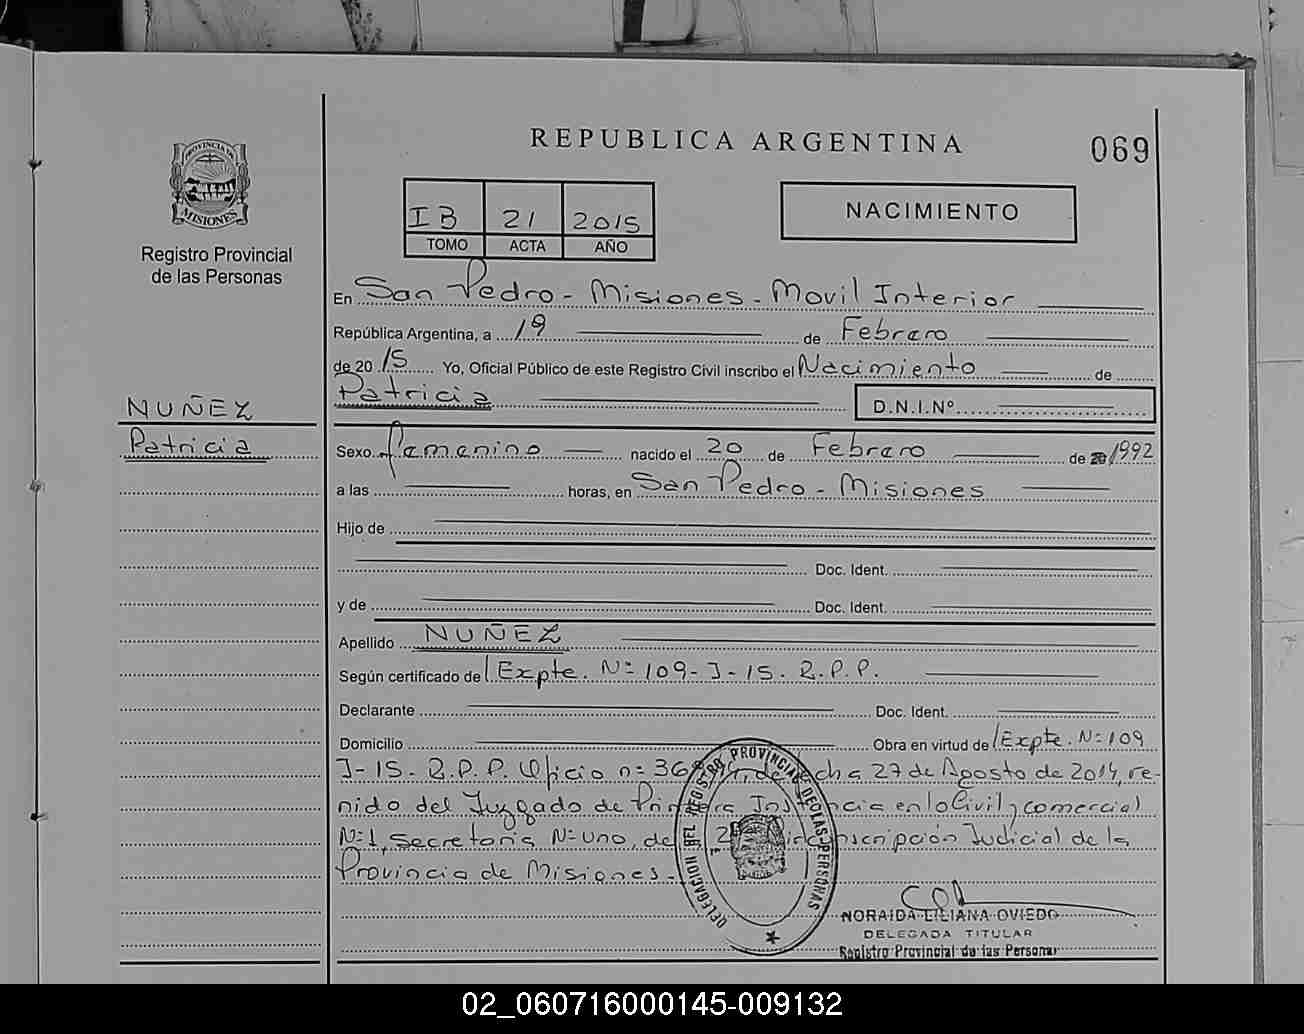 REPUBLICA ARGENTINA
069
PROVINCIA DE
MISIONES
Registro Provincial
de las Personas
IB 21 2015
TOMO ACTA AÑO
NACIMIENTO
En San Pedro - Misiones - Movil Interior
República Argentina, a 19 de Febrero
de 2015 Yo, Oficial Público de este Registro Civil inscribo el Nacimiento de
Patricia D.N.I.Nº
NUÑEZ
Patricia
Sexo femenino nacido el 20 de Febrero de 1992
a las horas, en San Pedro - Misiones
Hijo de
Doc. Ident.
y de Doc. Ident.
Apellido NUÑEZ
Según certificado de Expte. Nº 109-J-15. R.P.P.
Declarante Doc. Ident.
Domicilio Obra en virtud de Expte. Nº 109
J-15. R.P.P. Oficio nº de fecha 27 de Agosto de 2014, ve-
nido del Juzgado de Primera Instancia en lo Civil y comercial
Nº1, Secretaria Nº uno, de la Judicial de la
Provincia de Misiones.
DELEGACION DEL REGISTRO PROVINCIAL DE LAS PERSONAS
NORAIDA LILIANA OVIEDO
DELEGADA TITULAR
Registro Provincial de las Personas
02_060716000145-009132